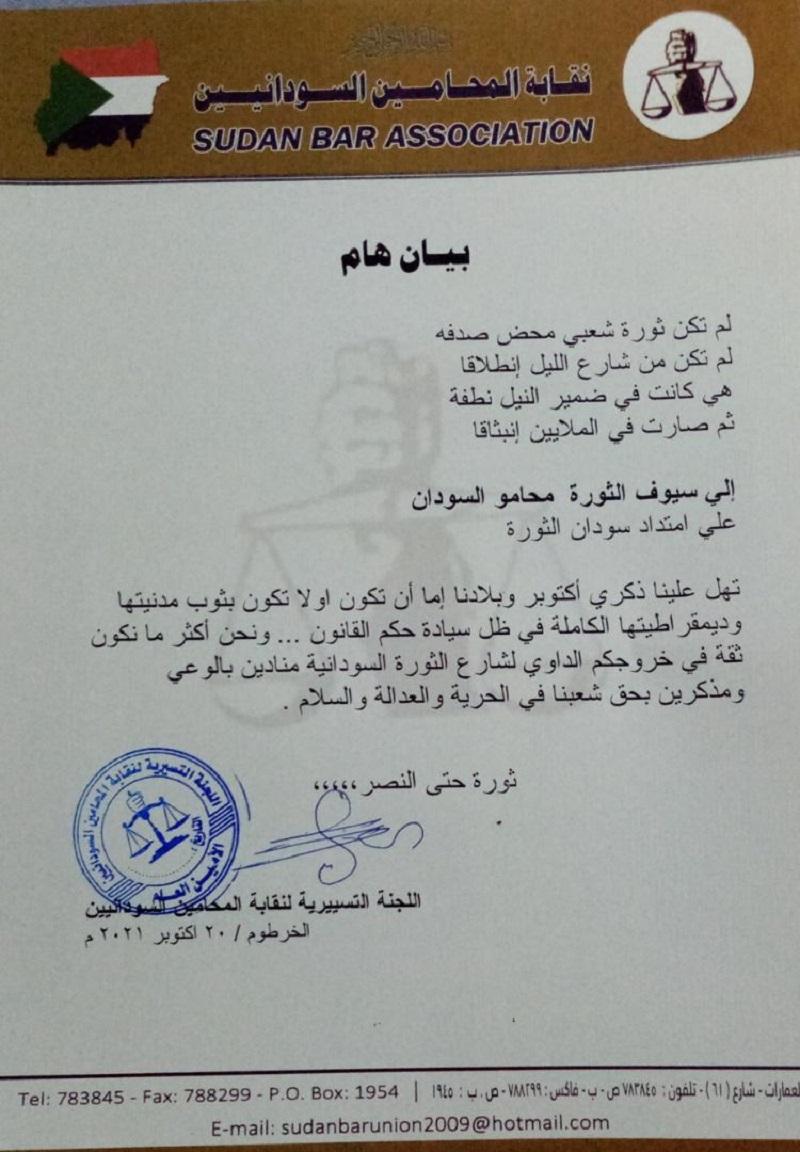 نقابة المحامين السودانيين
SUDAN BAR ASSOCIATION
بيان هام
لم تكن ثورة شعبي محض صدفه
لم تكن من شارع الليل إنطلاقا
هي كانت في ضمير النيل نطفة
ثم صارت في الملايين إنبثاقا
إلي سيوف الثورة محامو السودان
علي امتداد سودان الثورة
تهل علينا ذكري أكتوبر وبلادنا إما أن تكون اولا تكون بثوب مدنيتها
وديمقراطيتها الكاملة في ظل سيادة حكم القانون ... ونحن أكثر ما نكون
ثقة في خروجكم الداوي لشارع الثورة السودانية منادين بالوعي
ومذكرين بحق شعبنا في الحرية والعدالة والسلام .
ثورة حتى النصر ،،،،،
اللجنة التسيرية لنقابة المحامين السودانيين
التاريخ:
الأمين العام
اللجنة التسييرية لنقابة المحامين السودانيين
الخرطوم / ٢٠ اكتوبر ٢٠٢١ م
العمارات - شارع (٦١) - تلفون: ٧٨٣٨٤٥ ص - ب - فاكس: ٧٨٨٢٩٩ - ص . ب : ١٩٤٥ | Tel: 783845 - Fax: 788299 - P.O. Box: 1954
E-mail: sudanbarunion2009@hotmail.com